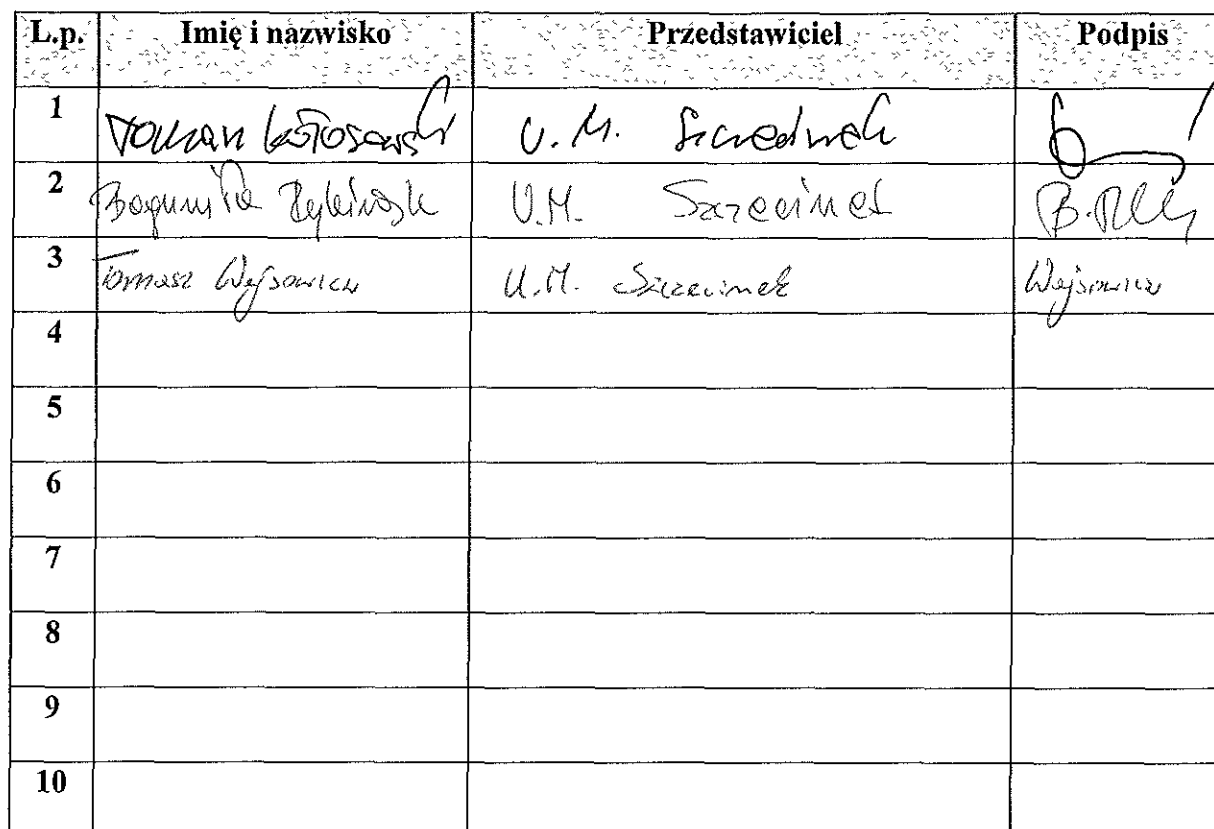 L.p. Imię i nazwisko Przedstawiciel Podpis
1 U. M. Szczecinek
2 Bogumiła U.M. Szczecinek
3 Tomasz Wejsowicz U.M. Szczecinek Wejsowicz
4
5
6
7
8
9
10